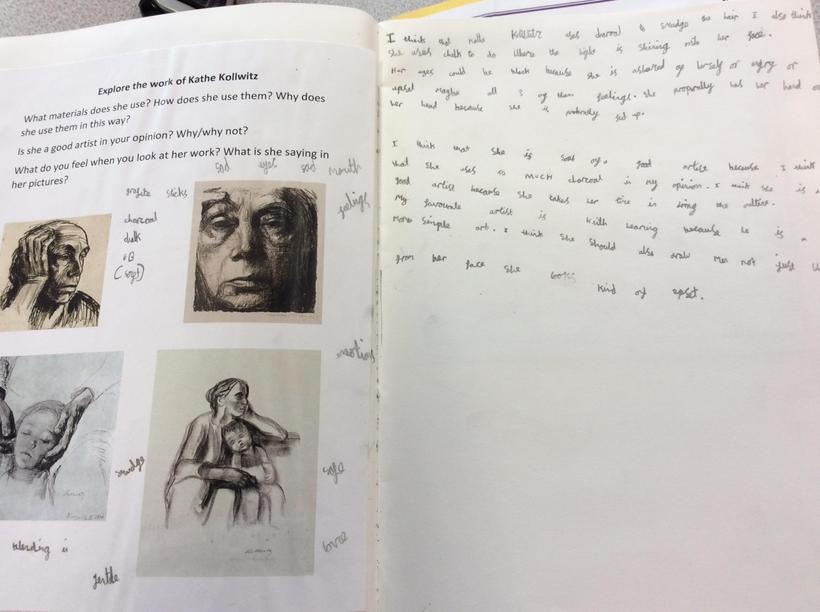 Explore the work of Kathe Kollwitz
What materials does she use? How does she use them? Why does
she use them in this way?
Is she a good artist in your opinion? Why/why not?
What do you feel when you look at her work? What is she saying in
her pictures?
sad eyes sad mouth
feelings
sticks
charcoal
chalk
(soft)
emotion
smudge
safe
love
blending
gentle
I think that Kollwitz uses charcoal & smudge so hair I also think
she uses chalk to do where the light is shining onto her face.
Her eyes could be black because she is of herself or angry or
upset maybe all 3 of them feelings. she has her hand
her head because she is fed up.
I think that she is of a good artist because I think
that she uses so much charcoal in my opinion. I she is
good artist because she takes her in doing the
My favourite artist is Keith Hearing because he is
more simple art. I think she should also draw men not just
from her face she looks kind of upset.